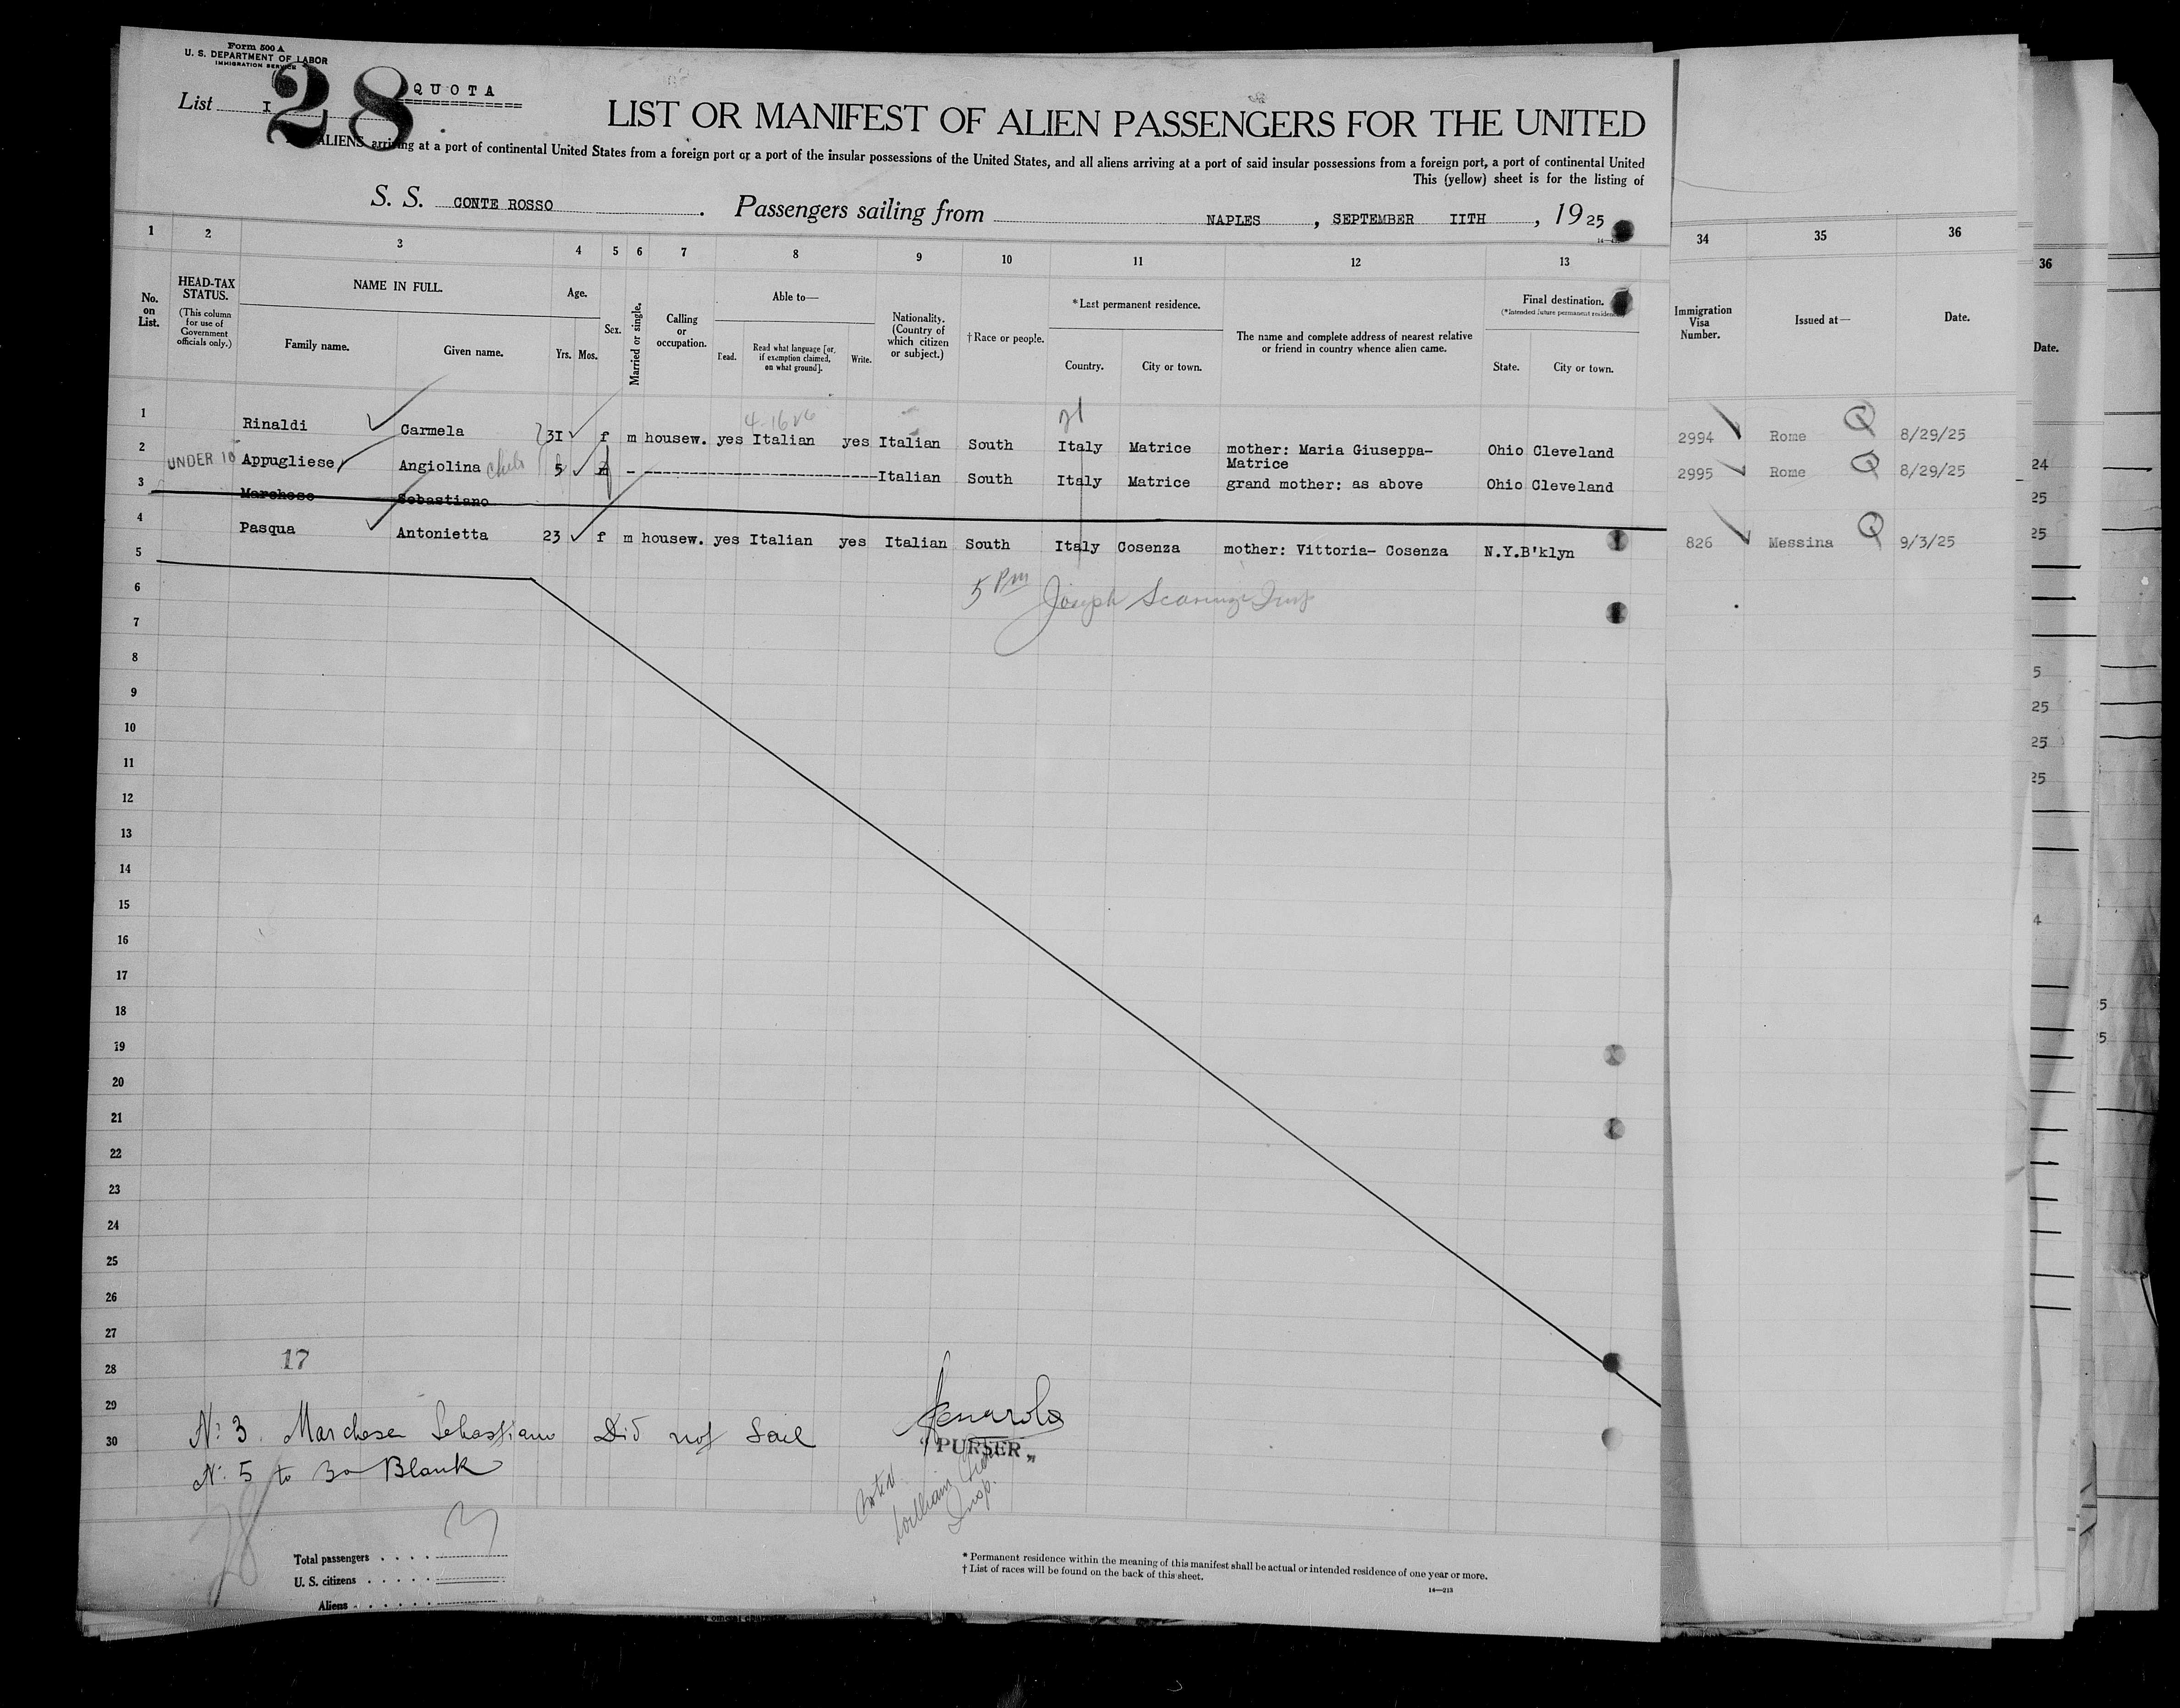 Form 500 A
U. S. DEPARTMENT OF LABOR
IMMIGRATION SERVICE
List I
28
QUOTA
LIST OR MANIFEST OF ALIEN PASSENGERS FOR THE UNITED
ALIENS arriving at a port of continental United States from a foreign port or a port of the insular possessions of the United States, and all aliens arriving at a port of said insular possessions from a foreign port, a port of continental United
This (yellow) sheet is for the listing of
S. S. CONTE ROSSO . Passengers sailing from NAPLES , SEPTEMBER IITH , 1925
1 2 3 4 5 6 7 8 9 10 11 12 13 34 35 36
36
No. on List.
HEAD-TAX STATUS.
(This column for use of Government officials only.)
NAME IN FULL.
Family name. Given name.
Age.
Yrs. Mos.
Sex.
Married or single.
Calling or occupation.
Able to—
Read. Read what language [or, if exemption claimed, on what ground]. Write.
Nationality. (Country of which citizen or subject.)
† Race or people.
* Last permanent residence.
Country. City or town.
The name and complete address of nearest relative or friend in country whence alien came.
Final destination.
(*Intended future permanent residence)
State. City or town.
Immigration Visa Number.
Issued at—
Date.
Date.
4-1626
1 Rinaldi Carmela 31 f m housew. yes Italian yes Italian South Italy Matrice mother: Maria Giuseppa- Matrice Ohio Cleveland 2994 Rome Q 8/29/25
2 UNDER 16 Appugliese Angiolina child 5 f - Italian South Italy Matrice grand mother: as above Ohio Cleveland 2995 Rome Q 8/29/25
3 Marchese Sebastiano
4 Pasqua Antonietta 23 f m housew. yes Italian yes Italian South Italy Cosenza mother: Vittoria- Cosenza N.Y. B'klyn 826 Messina Q 9/3/25
5
5 Pm Joseph
6
7
8
9
10
11
12
13
14
15
16
17
18
19
20
21
22
23
24
25
26
27
28
29
30
24
25
25
5
25
25
25
4
5
5
17
No 3. Marchese Sebastiano Did not Sail
No. 5 to 30 Blank
"PURSER"
Noted
William
Insp.
28
3
Total passengers
U. S. citizens
Aliens
* Permanent residence within the meaning of this manifest shall be actual or intended residence of one year or more.
† List of races will be found on the back of this sheet.
14—213